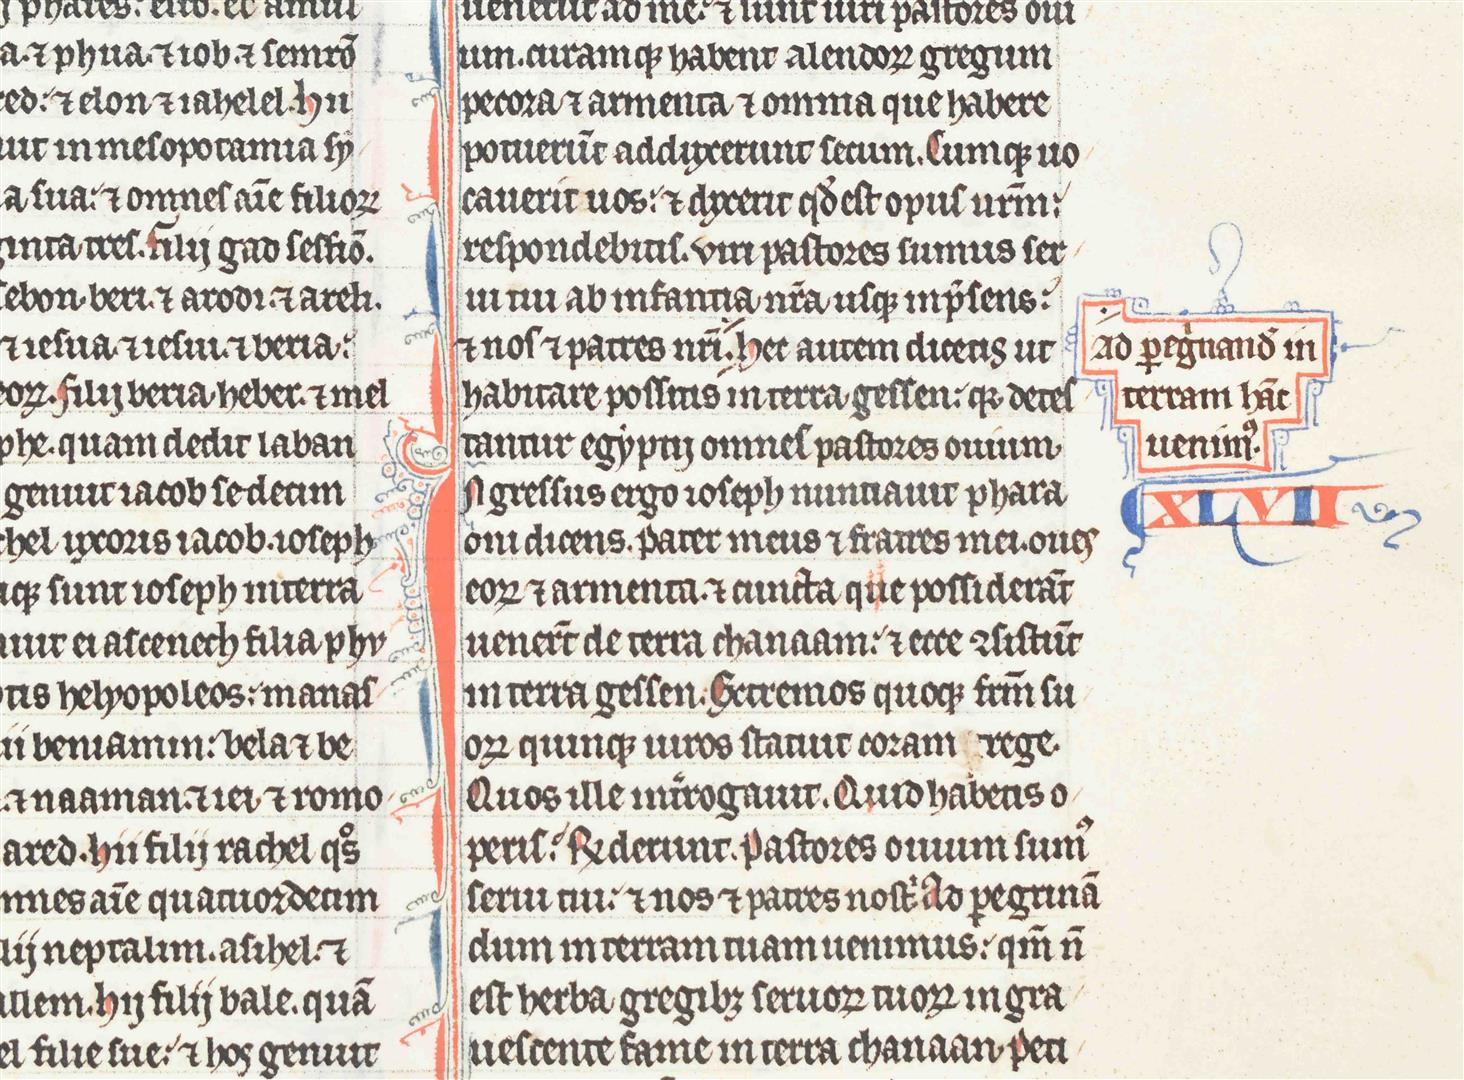 phares: efro. et amul
a. ⁊ phua. ⁊ iob. ⁊ semrō
red: ⁊ elon ⁊ iahelel. hii
uit in mesopotamia sy
a sua: ⁊ omnes aīe filioꝝ
ginta tres. filij gad sefiō.
sebon. beri. ⁊ arodi. ⁊ areli.
⁊ iesua. ⁊ iesui. ⁊ beria:
eoꝝ. filij beria. heber. ⁊ mel
phe. quam dedit laban
genuit iacob sedecim
chel uxoris iacob. ioseph
iqꝫ sunt ioseph in terra
nuit ei ascenech filia phy
otis helyopoleos: manas
ii beniamin: bela ⁊ be
. ⁊ naaman. ⁊ iei. ⁊ romo
ared. hii filij rachel qͦs
mnes aīe quatuordecim
lij neptalim. asihel. ⁊
allem. hij filij bale. quā
el filie sue: ⁊ hos genuit
uenerūt ad me: ⁊ sunt uiri pastores oui
um. curamqꝫ habent alendoꝝ gregum
pecora ⁊ armenta ⁊ omnia que habere
potuerūt adduxerunt secum. Cumqꝫ uo
cauerit uos: ⁊ dixerit qd̄ est opus urm̄:
respondebitis. viri pastores sumus ser
ui tui ab infantia nr̄a usqꝫ in p̄sens:
⁊ nos ⁊ patres nr̄i. hec autem dicetis ut
habitare possitis in terra gessen: qꝛ detes
tantur egyptij omnes pastores ouium.
Ingressus ergo ioseph nuntiauit phara
oni dicens. pater meus ⁊ fratres mei. oues
eoꝝ ⁊ armenta. ⁊ cuncta que possiderāt
uenerūt de terra chanaam: ⁊ ecce ꝯsistūt
in terra gessen. Extremos quoqꝫ frm̄ su
oꝝ quinqꝫ uiros statuit coram rege.
Quos ille int̄rogauit. Quid habetis o
peris: Rn̄derunt. pastores ouium sumꝰ
serui tui: ⁊ nos ⁊ patres nost̄. Ad ꝑegrinā
dum in terram tuam uenimus: qm̄ n̄
est herba gregibꝫ seruoꝝ tuoꝝ in gra
uescente fame in terra chanaan. peti
ad ꝑegⁱnand̄ in
terram hāc
uenimꝰ.
XLVII